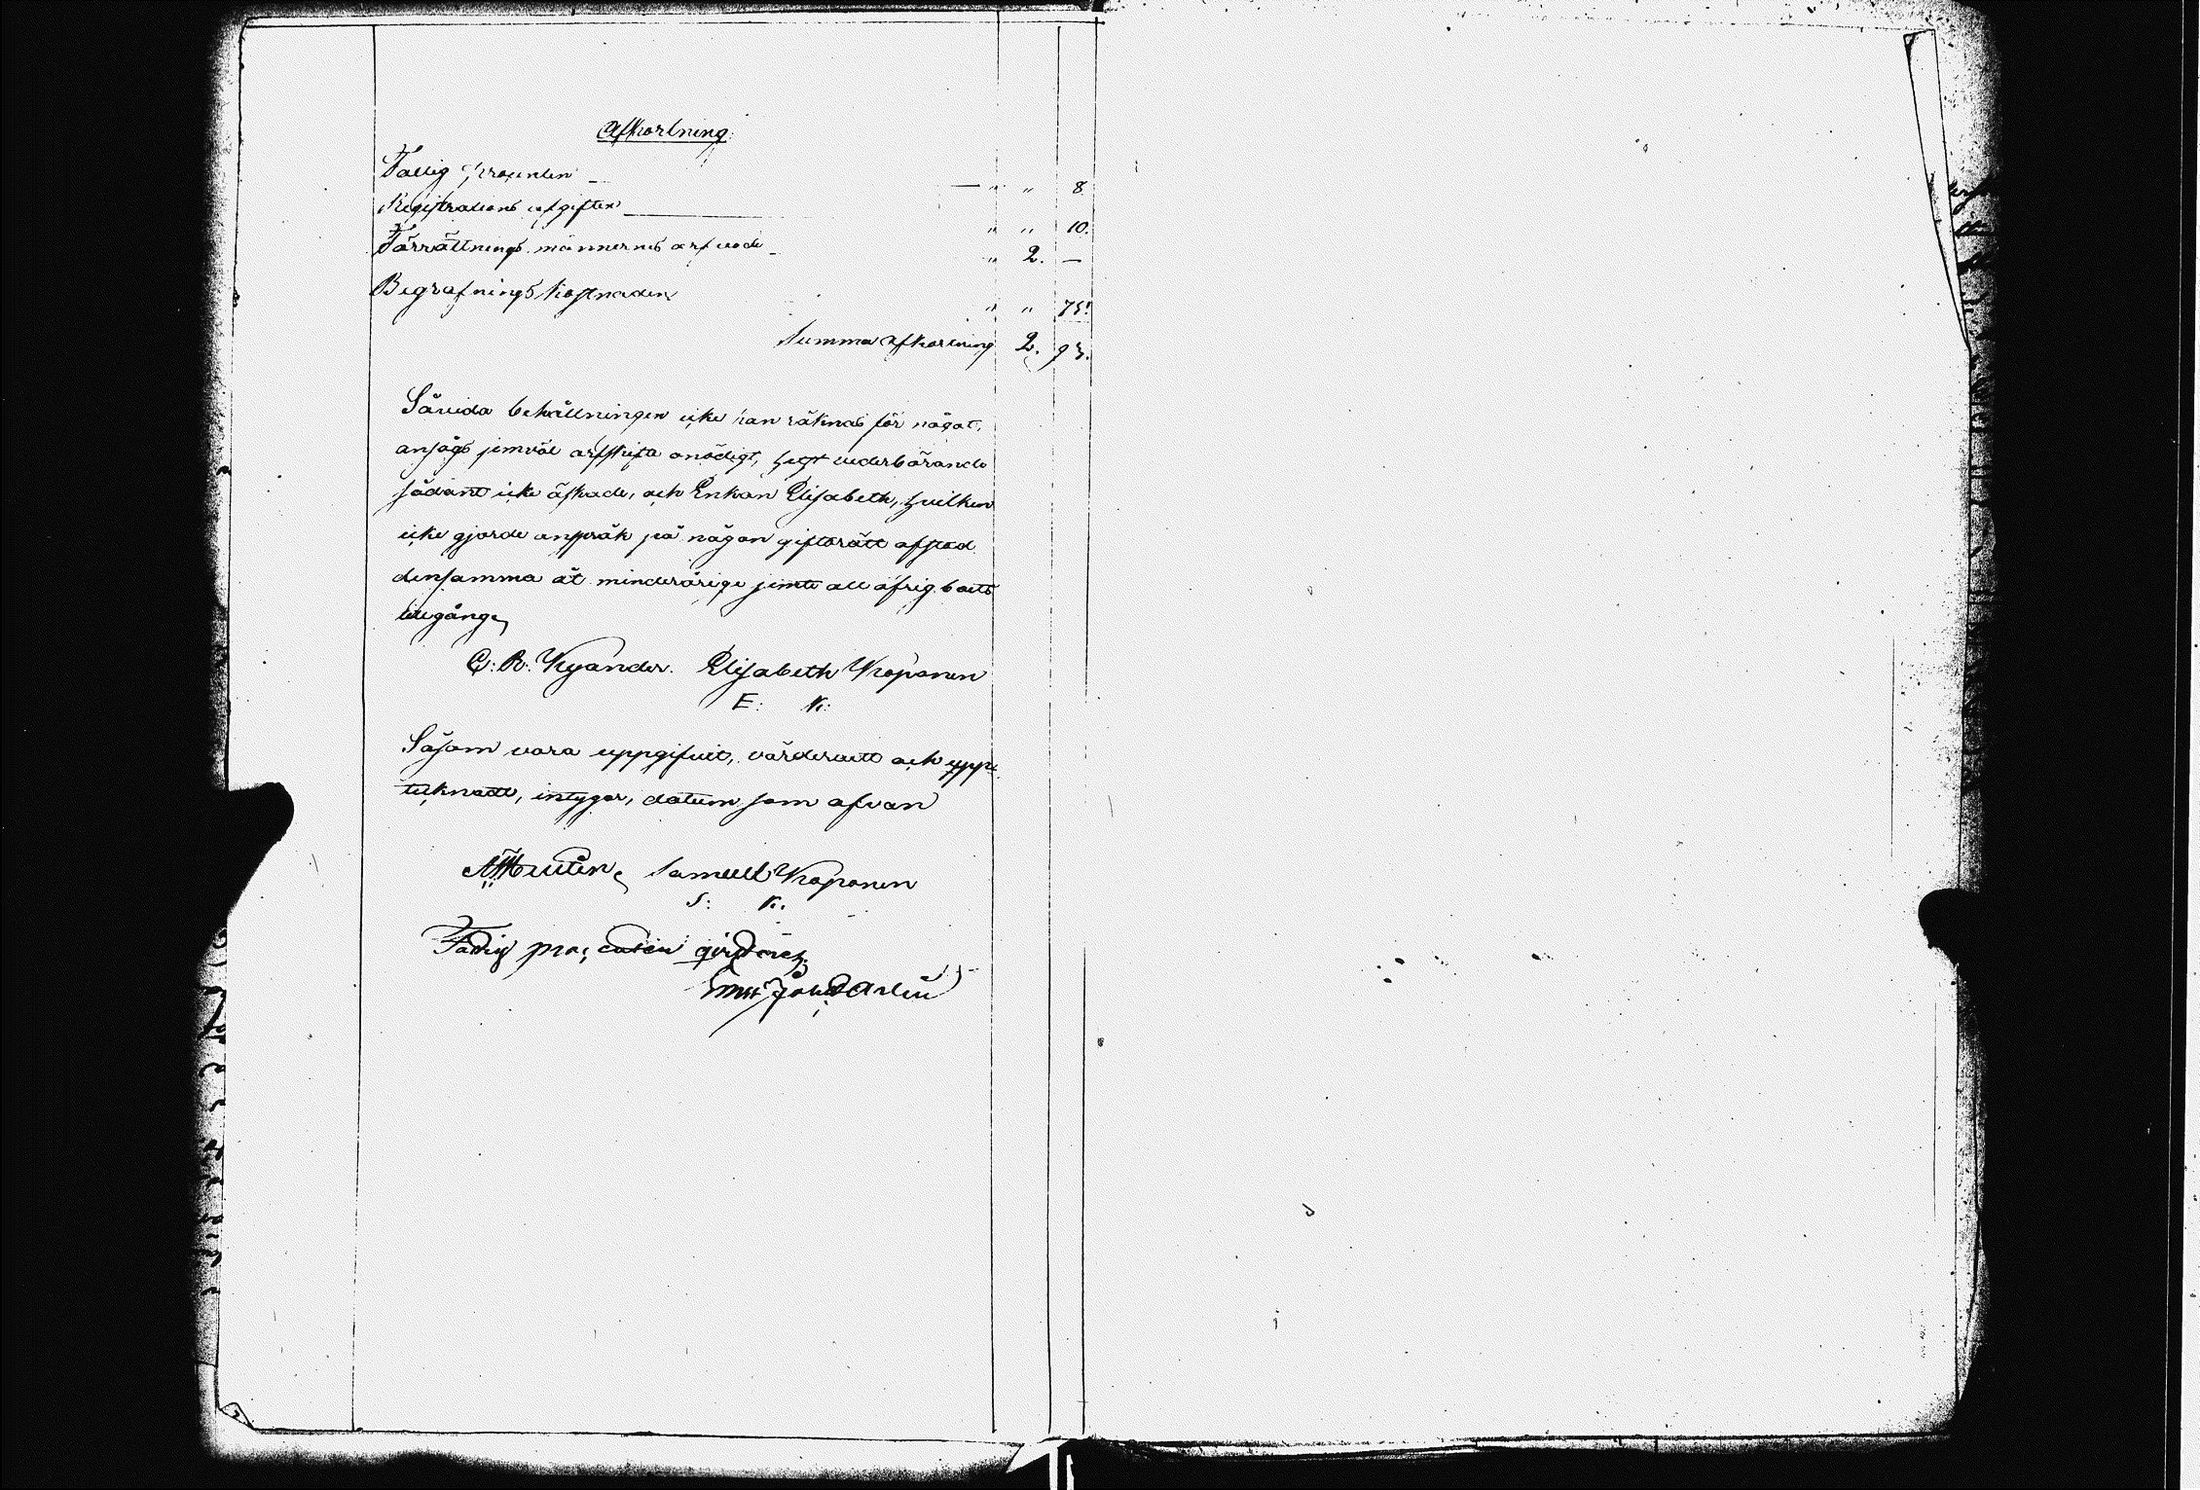 Afkortning.
Fattig procenten — " " 8
Registrations afgiften " " 10.
Förrättnings männernas arfvode " 2. —
Begrafnings kostnaden " " 75.
Summa afkortning 2. 93.
Såvida behållningen icke kan räknas för något,
ansågs jemväl arfskifte onödigt, helst vederbörande
sådant icke äskade, och Enkan Elisabeth, hvilken
icke gjorde anspråk på någon giftorätt afstod
densamma åt minderårige jemte all öfrig boets
tillgång
C: R: Kyander. Elisabeth Kroponen
E: K:
Såsom vara uppgifvit, värderadt och upp-
tecknadt, intygar, datum som ofvan
Samuel Kroponen
S: K:
Fattig procenten